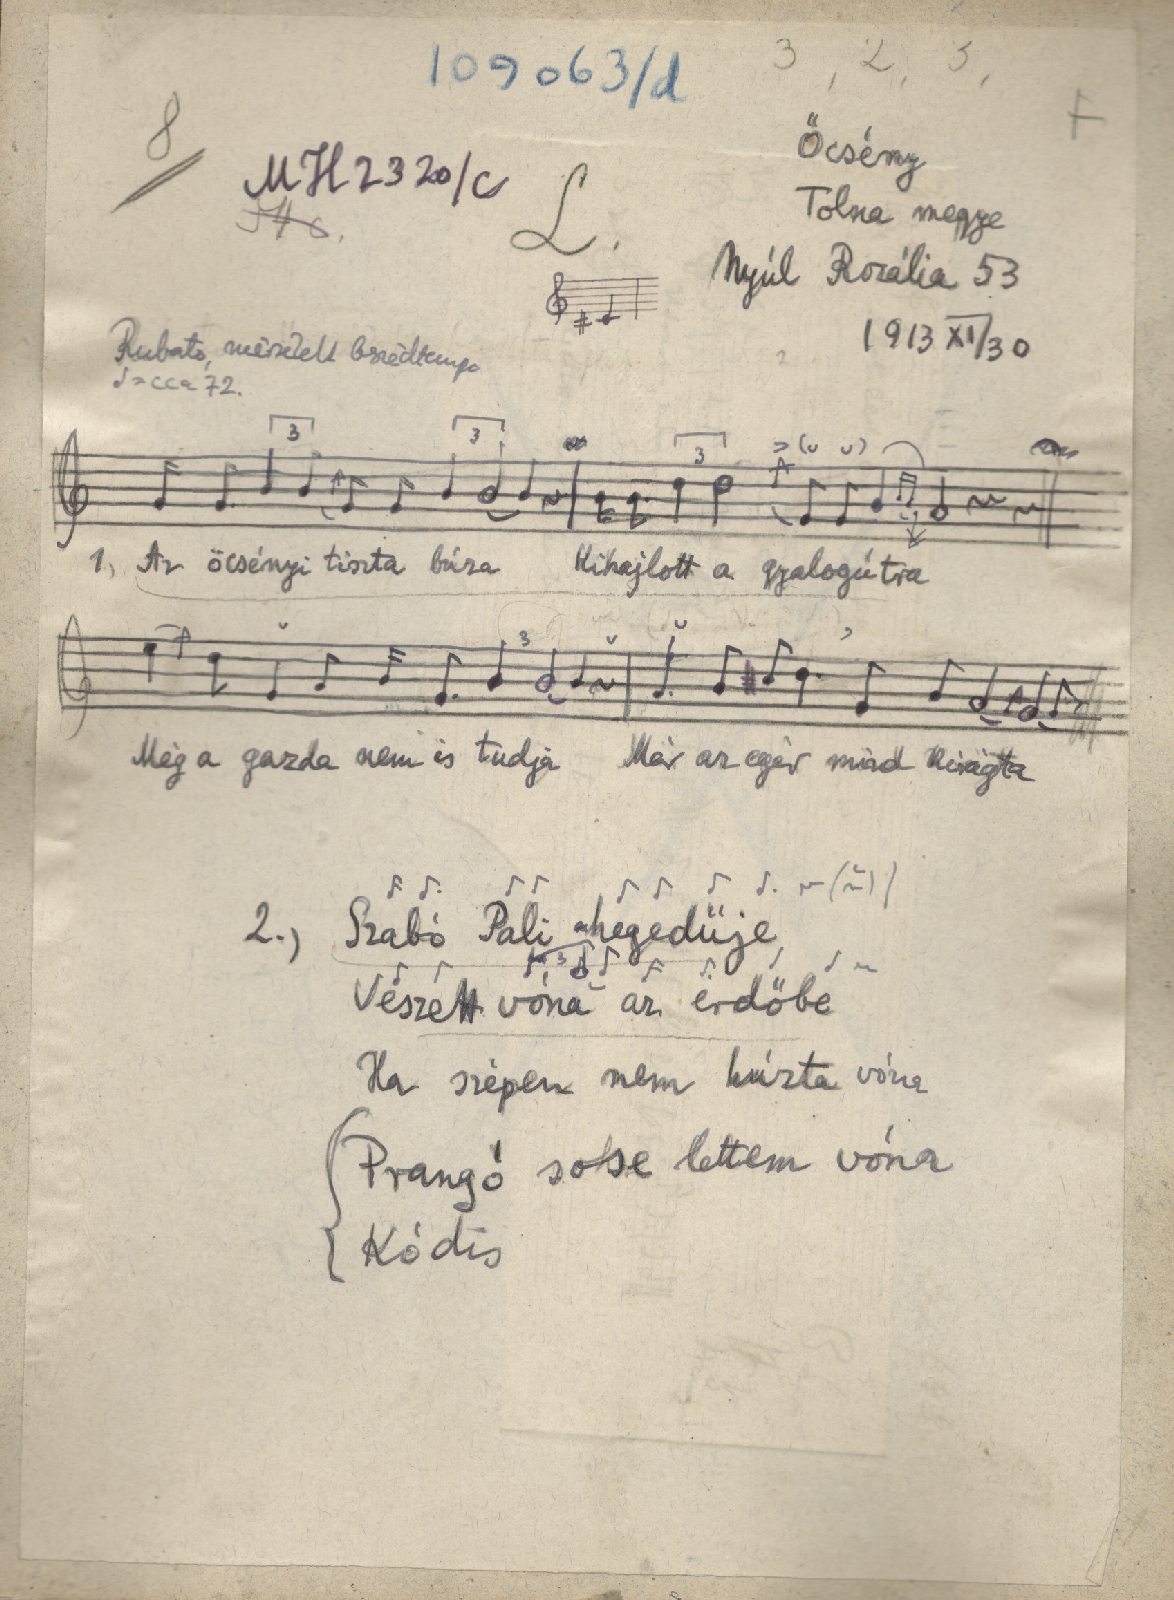 109063/d
3, 2, 3,
8
F
MH 2320/c
L.
Őcsény
Tolna megye
Nyúl Rozália 53
1913 XI/30
Rubato, mérsékelt beszédtempo
♪ = cca 72.
3 3 3
1, Az öcsényi tiszta búza Kihajlott a gyalogútra
3
Még a gazda nem is tudja Már az egér mind kirágta
2., Szabó Pali hegedüje
3
Veszett vóna az erdőbe
Ha szépen nem húzta vóna
Prangó sose lettem vóna
Kódis